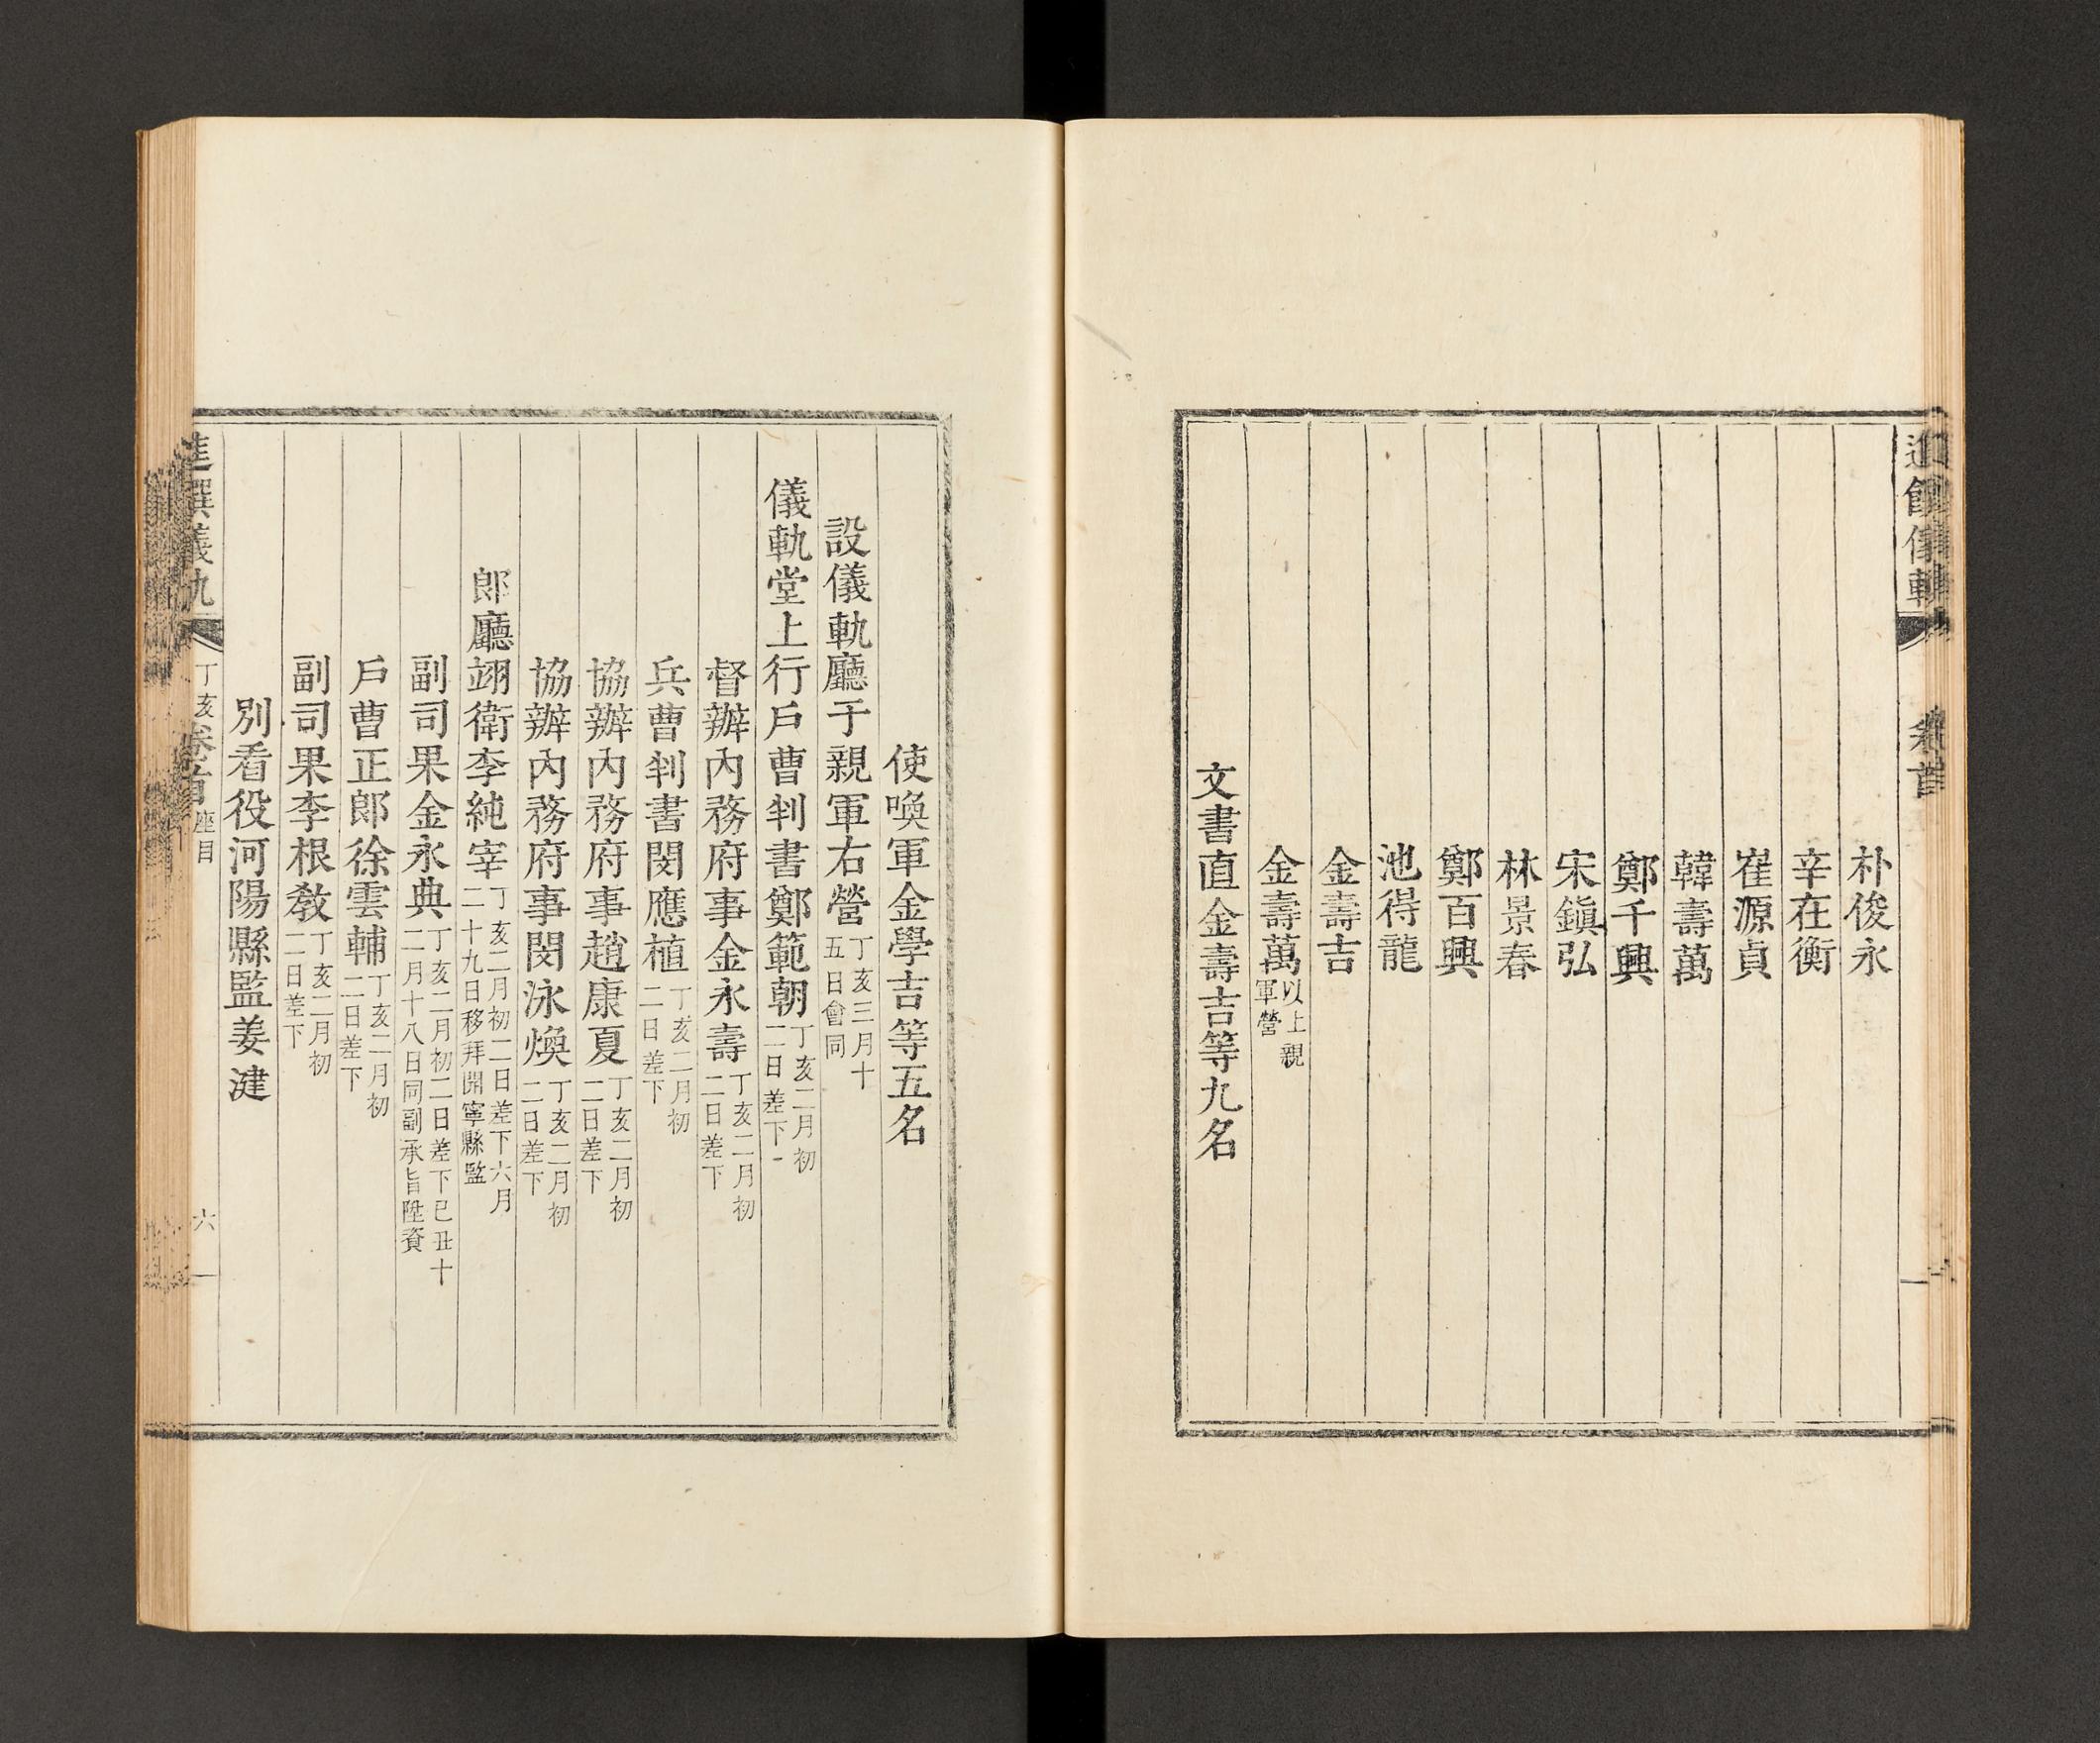 朴俊永
辛在衡
崔源貞
韓壽萬
鄭千興
宋鎭弘
林景春
鄭百興
池得龍
金壽吉
金壽萬 以上親軍營
文書直金壽吉等九名
使喚軍金學吉等五名
設儀軌廳于親軍右營 丁亥三月十五日會同
儀軌堂上行戶曹判書鄭範朝 丁亥二月初二日差下
督辦內務府事金永壽 丁亥二月初二日差下
兵曹判書閔應植 丁亥二月初二日差下
協辦內務府事趙康夏 丁亥二月初二日差下
協辦內務府事閔泳煥 丁亥二月初二日差下
郞廳翊衛李純宰 丁亥二月初二日差下六月二十九日移拜開寧縣監
副司果金永典 丁亥二月初二日差下己丑十二月十八日同副承旨陞資
戶曹正郞徐雲輔 丁亥二月初二日差下
副司果李根敎 丁亥二月初二日差下
別看役河陽縣監姜湕
進饌儀軌 丁亥 卷首 座目 六